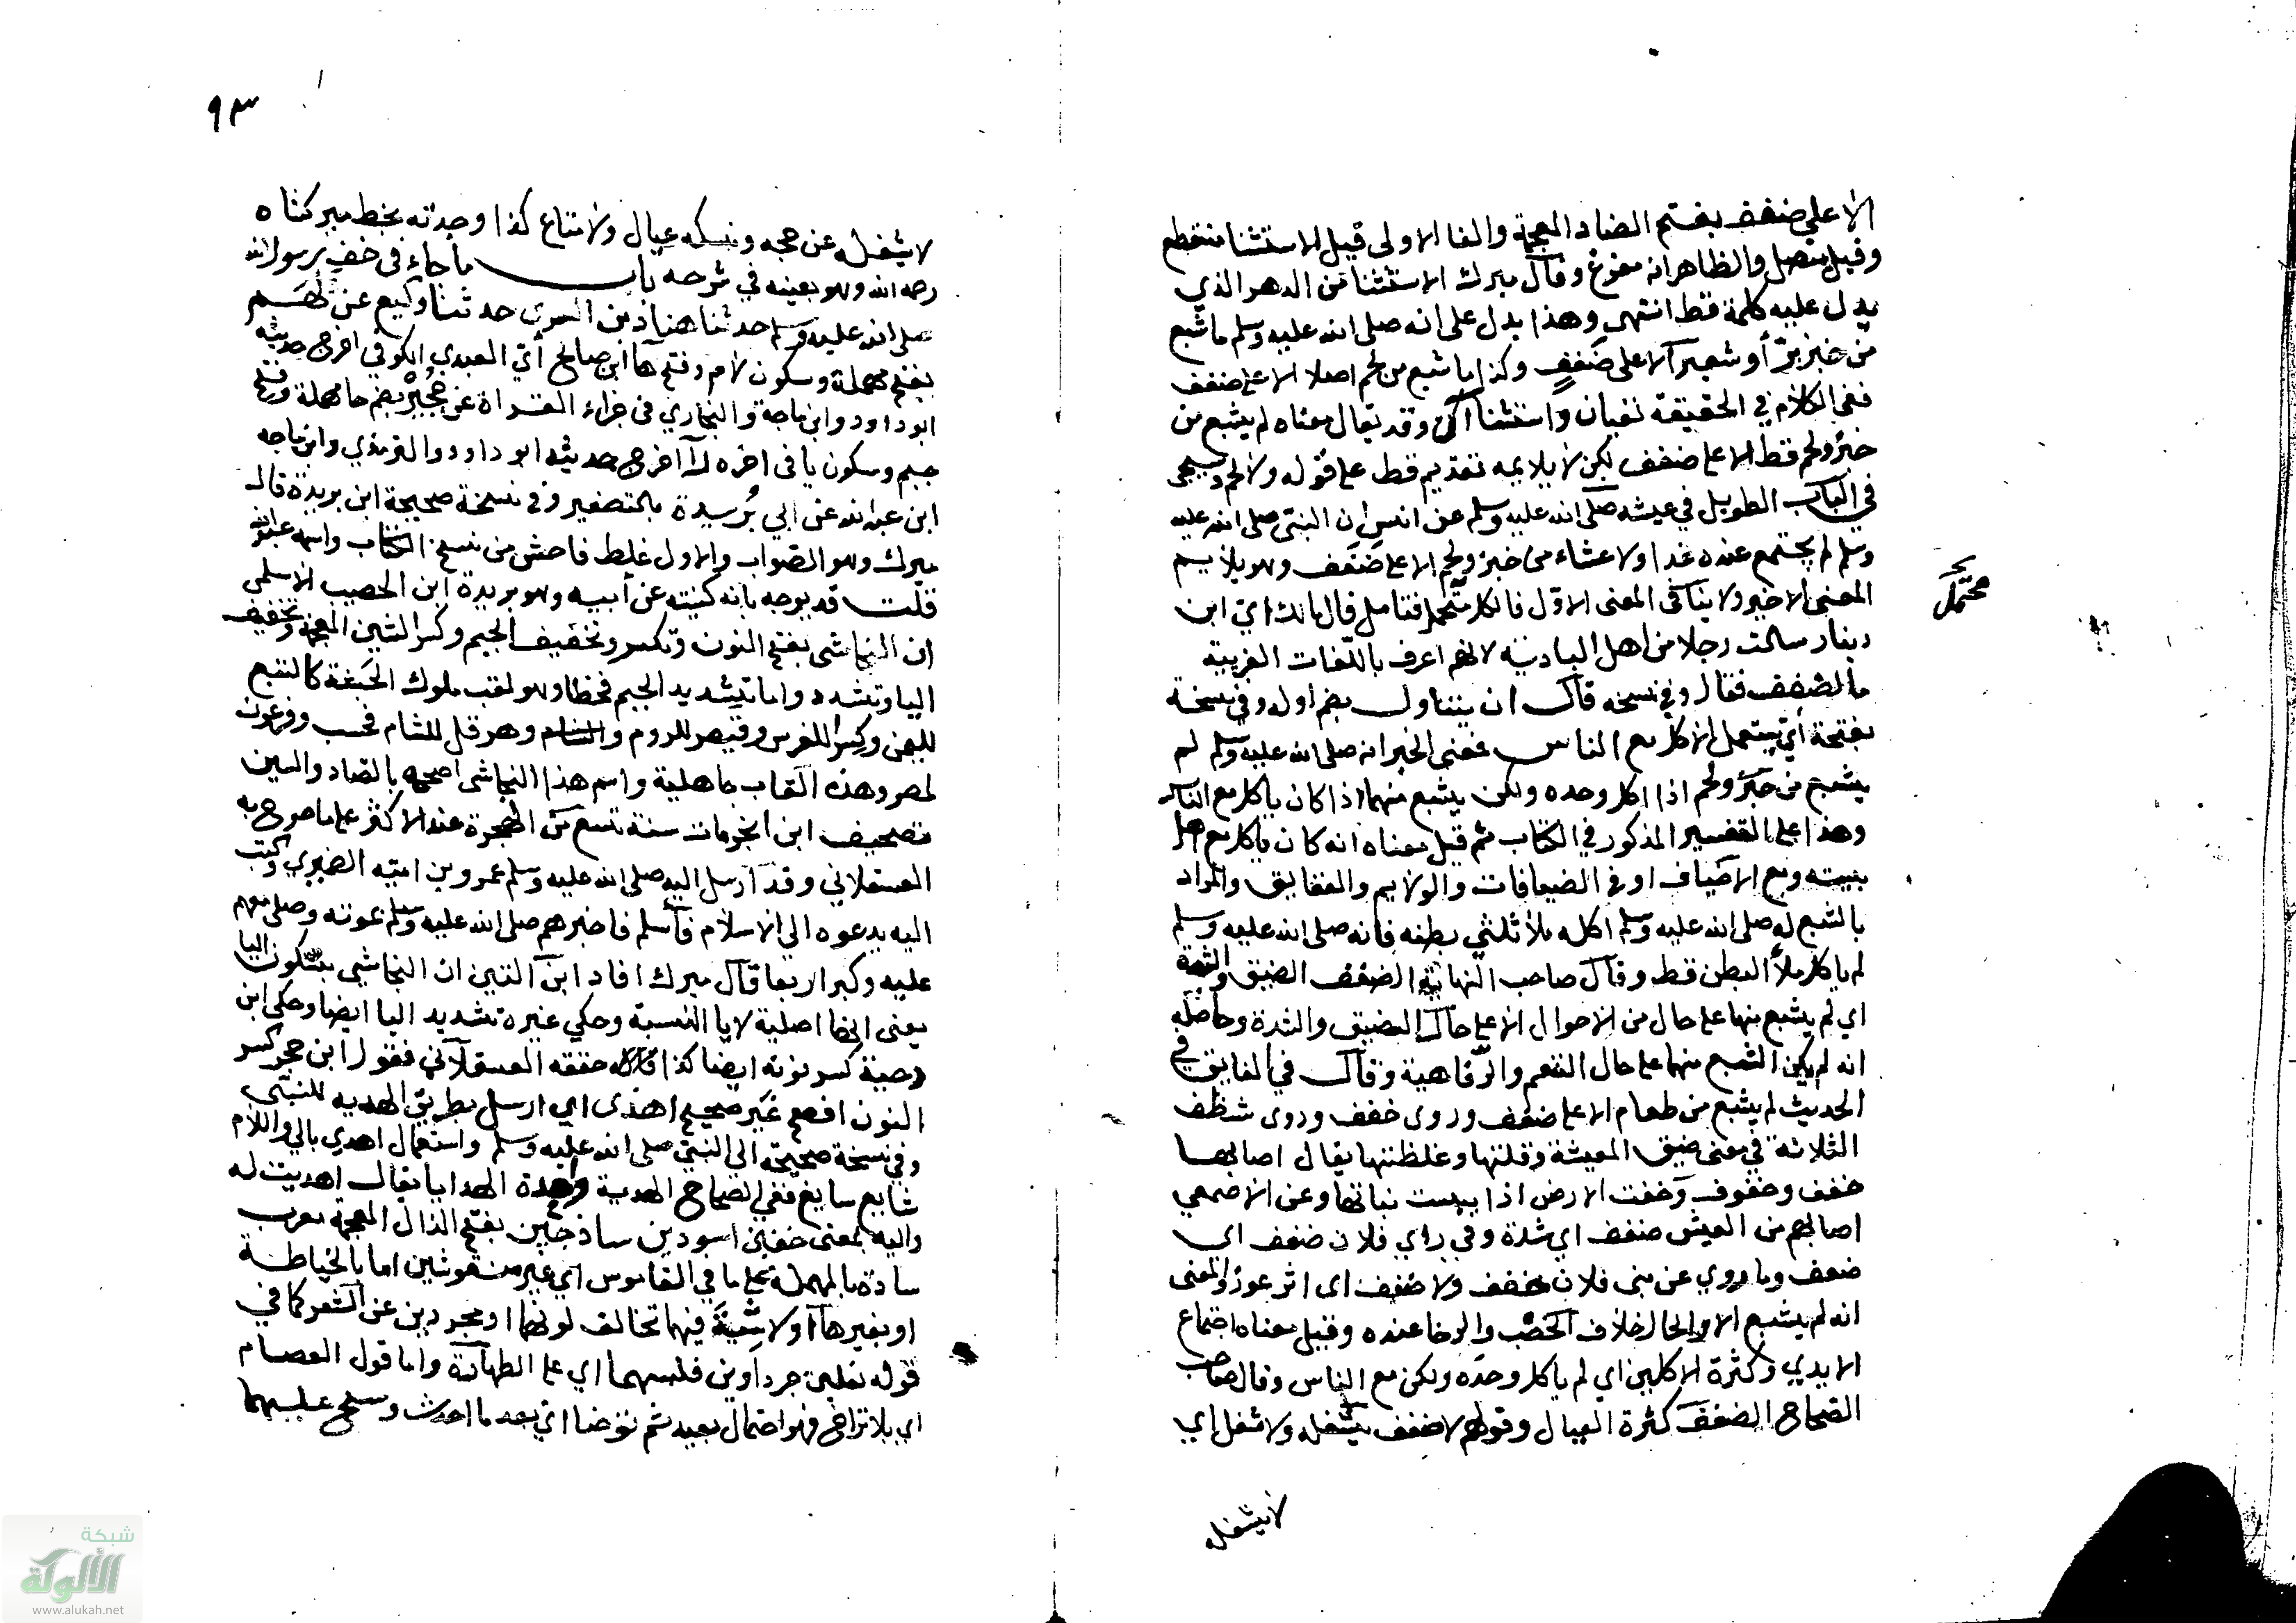 الا على ضفف بفتح الضاد المعجمة والفا الاولى قيل الاستثنا منقطع
وقيل متصل والظاهر انه مفرغ وقال ميرك الاستثنا من الدهر الذي
يدل عليه كلمة قط انتهى وهذا يدل على انه صلى الله عليه وسلم ما شبع
من خبز برّ أو شعير الا على ضفف وكذا ما شبع من لحم اصلا الا على ضفف
ففي الكلام في الحقيقة نفيان واستثنا آن وقد يقال معناه لم يشبع من
خبز ولحم قط الا على ضفف لكن لا يلايمه تقديم قط على قوله ولا لحم وسيجي
في الباب الطويل في عيشه صلى الله عليه وسلم عن انس ان النبي صلى الله عليه
وسلم لم يجتمع عنده غدا ولا عشاء من خبز ولحم الا على ضفف وهو يلايم
المعنى الاخير ولا ينافى المعنى الاوّل فالكل متحمل فتامل قال مالك اي ابن
محتمل
دينار سالت رجلا من اهل البادية لانهم اعرف باللغات الغريبة
ما الضفف فقال وفي نسخه قال ان يتناول بضم اوله وفي نسخة
بفتحة أي يستعمل الاكل مع الناس فمعنى الخبر انه صلى الله عليه وسلم لم
يشبع من خبز ولحم اذا اكل وحده ولكن يشبع منهما اذا كان ياكل مع الناس
وهذا على التفسير المذكور في الكتاب ثم قيل معناه انه كان ياكل مع اهل
بيته ومع الاضياف او في الضيافات والولايم والعقايق والمراد
بالشبع له صلى الله عليه وسلم اكله ملأ ثلثي بطنه فانه صلى الله عليه وسلم
لم ياكل ملأ البطن قط وقال صاحب النهاية الضفف الضيق والشدة
اي لم يشبع منها على حال من الاحوال الا على حال الضيق والشدة وحاصله
انه لم يكن الشبع منهما على حال التنعم والرفاهية وقال في الفايق في
الحديث لم يشبع من طعام الا على ضفف وروى حفف وروى شظف
الثلاثة في معنى ضيق المعيشة وقلتها وغلظتها يقال اصابهما
حفف وحفوف وحفت الارض اذا يبست نباتها وعن الاصمعي
اصابهم من العيش ضفف اي شدة وفي راي فلان ضفف اي
ضعف وما روي عن بني فلان حفف ولا ضفف اى اثر عوز والمعنى
انه لم يشبع الا والحال خلاف الخصب والرخا عنده وقيل معناه اجتماع
الايدي وكثرة الاكلين اي لم ياكل وحده ولكن مع الناس وقال صاحب
الصحاح الضفف كثرة العيال وقولهم لا ضفف يشغله ولا ثقل اي
لا يشغله
٩٣
لا يشغله عن حجه ونسكه عيال ولا متاع كذا وجدته بخط ميركشاه
رحمه الله وهو بعينه في شرحه باب ما جاء في خف رسول الله
صلى الله عليه وسلم حدثنا هناد بن السرى حدثنا وكيع عن دلهم
بفتح مهملة وسكون لام وفتح ها ابن صالح أي العبدي الكوفي اخرج حديثه
ابو داود وابن ماجة والبخاري في جزاء القراة عن حجير بضم حا مهملة وفتح
جيم وسكون يا في اخره را اخرج حديثه ابو داود والترمذي وابن ماجه
ابن عبد الله عن ابي بُريدة بالتصغير وفي نسخة صحيحة ابن بريدة قال
ميرك وهو الصواب والاول غلط فاحش من نسخ الكتاب واسمه عبد الله
قلت قد يوجه بانه كنيته عن أبيه وهو بريدة ابن الحصيب الاسلمي
ان النجاشي بفتح النون وتكسر وتخفيف الجيم وكسر الشين المعجمة وتخفيف
اليا وتشدد واما تشديد الجيم فخطا وهو لقب ملوك الحبشة كالتبع
لليمن وكسرا للفرس وقيصر للروم والشام وهرقل للشام فحسب وفرعون
لمصر وهذه القاب جاهلية واسم هذا النجاشي اصحمه بالصاد والسين
تصحيف ابن ابحر مات سنة تسع من الهجرة عند الاكثر على ما صرح به
العسقلاني وقد ارسل اليه صلى الله عليه وسلم عمرو بن امية الضمري وكتب
اليه يدعوه الى الاسلام فأسلم فاخبرهم صلى الله عليه وسلم بموته وصلى معهم
عليه وكبر اربعا قال ميرك افاد ابن التين ان النجاشي بسكون اليا
يعنى انها اصلية لا يا النسبة وحكي غيره تشديد اليا ايضا وحكى ابن
دحية كسر نونه ايضا كذا حققه العسقلاني فقول ابن حجر كسر
النون افصح غير صحيح اهدى اي ارسل بطريق الهديه للنبي
وفي نسخة صحيحة الى النبي صلى الله عليه وسلم واستعمال اهدي بالي واللام
شايع سايغ ففي الصحاح الهدية واحدة الهدايا يقال اهديت له
واليه بمعنى خفين اسودين ساذجين بفتح الذال المعجمة معرب
سادة بالمهملة على ما في القاموس اي غير منقوشين اما بالخياطة
او بغيرها او لا شِيَةَ فيهما تخالف لونهما او مجردين عن الشعر كما في
قوله نعلين جرداوين فلبسهما اي على الطهارة واما قول العصام
اي بلا تراخ فهو احتمال بعيد ثم توضا اي بعد ما احدث ومسح عليهما
شبكة
الألوكة
www.alukah.net